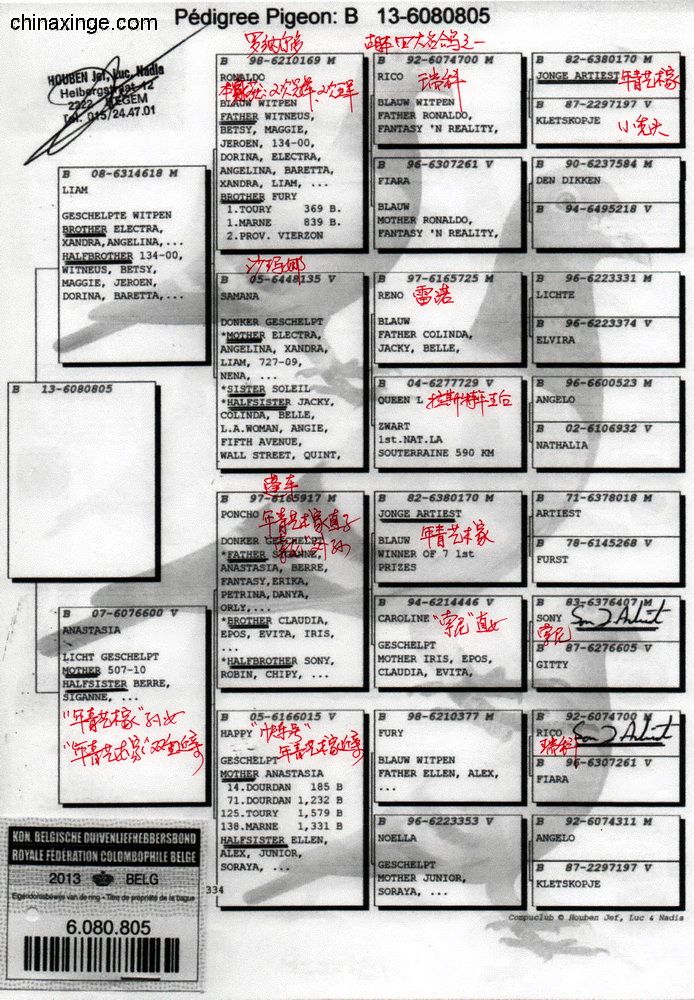 chinaxinge.com
Pédigree Pigeon: B 13-6080805
HOUBEN Jef, Luc, Nadia
Heibergstraat 12
2222 ITEGEM
Tel. 015/24.47.01
B 13-6080805
B 08-6314618 M
LIAM
GESCHELPTE WITPEN
BROTHER ELECTRA,
XANDRA,ANGELINA,...
HALFBROTHER 134-00,
WITNEUS, BETSY,
MAGGIE, JEROEN,
DORINA, BARETTA,...
B 07-6076600 V
ANASTASIA
LICHT GESCHELPT
MOTHER 507-10
HALFSISTER BERRE,
SIGANNE, ...
"年青艺术家"孙女
"年青艺术家"双面近亲
罗纳尔多
B 98-6210169 M
RONALDO
BLAUW WITPEN
FATHER WITNEUS,
BETSY, MAGGIE,
JEROEN, 134-00,
DORINA, ELECTRA,
ANGELINA, BARETTA,
XANDRA, LIAM, ...
BROTHER FURY
1.TOURY 369 B.
1.MARNE 839 B.
2.PROV. VIERZON
沙玛娜
B 05-6448135 V
SAMANA
DONKER GESCHELPT
*MOTHER ELECTRA,
ANGELINA, XANDRA,
LIAM, 727-09,
NENA, ...
*SISTER SOLEIL
*HALFSISTER JACKY,
COLINDA, BELLE,
L.A.WOMAN, ANGIE,
FIFTH AVENUE,
WALL STREET, QUINT,
B 97-6165917 M
PONCHO
年青艺术家直子
DONKER GESCHELPT
*FATHER SIGANNE,
ANASTASIA, BERRE,
FANTASY,ERIKA,
PETRINA,DANYA,
ORLY,...
*BROTHER CLAUDIA,
EPOS, EVITA, IRIS,
...
*HALFBROTHER SONY,
ROBIN, CHIPY, ...
B 05-6166015 V
HAPPY "快乐号"
年青艺术家近亲
GESCHELPT
MOTHER ANASTASIA
14.DOURDAN 185 B
71.DOURDAN 1,232 B
125.TOURY 1,579 B
138.MARNE 1,331 B
HALFSISTER ELLEN,
ALEX, JUNIOR,
SORAYA, ...
334
B 92-6074700 M
RICO
瑞科
BLAUW WITPEN
FATHER RONALDO,
FANTASY 'N REALITY,
B 96-6307261 V
FIARA
BLAUW
MOTHER RONALDO,
FANTASY 'N REALITY,
B 97-6165725 M
RENO 雷诺
BLAUW
FATHER COLINDA,
JACKY, BELLE,
B 04-6277729 V
QUEEN L
ZWART
1st.NAT.LA
SOUTERRAINE 590 KM
B 82-6380170 M
JONGE ARTIEST
BLAUW 年青艺术家
WINNER OF 7 1st
PRIZES
B 94-6214446 V
CAROLINE "索尼"直女
GESCHELPT
MOTHER IRIS, EPOS,
CLAUDIA, EVITA,
B 98-6210377 M
FURY
BLAUW WITPEN
FATHER ELLEN, ALEX,
...
B 96-6223353 V
NOELLA
GESCHELPT
MOTHER JUNIOR,
SORAYA, ...
B 82-6380170 M
JONGE ARTIEST 年青艺术家
B 87-2297197 V
KLETSKOPJE
B 90-6237584 M
DEN DIKKEN
B 94-6495218 V
B 96-6223331 M
LICHTE
B 96-6223374 V
ELVIRA
B 96-6600523 M
ANGELO
B 02-6106932 V
NATHALIA
B 71-6378018 M
ARTIEST
B 78-6145268 V
FURST
B 83-6376407 M
SONY
索尼
B 87-6276605 V
GITTY
B 92-6074700 M
RICO
瑞科
B 96-6307261 V
FIARA
B 92-6074311 M
ANGELO
B 87-2297197 V
KLETSKOPJE
Compuclub © Houben Jef, Luc & Nadia
KON. BELGISCHE DUIVENLIEFHEBBERSBOND
ROYALE FÉDÉRATION COLOMBOPHILE BELGE
2013 BELG
Eigendomsbewijs van de ring - Titre de propriété de la bague
6.080.805